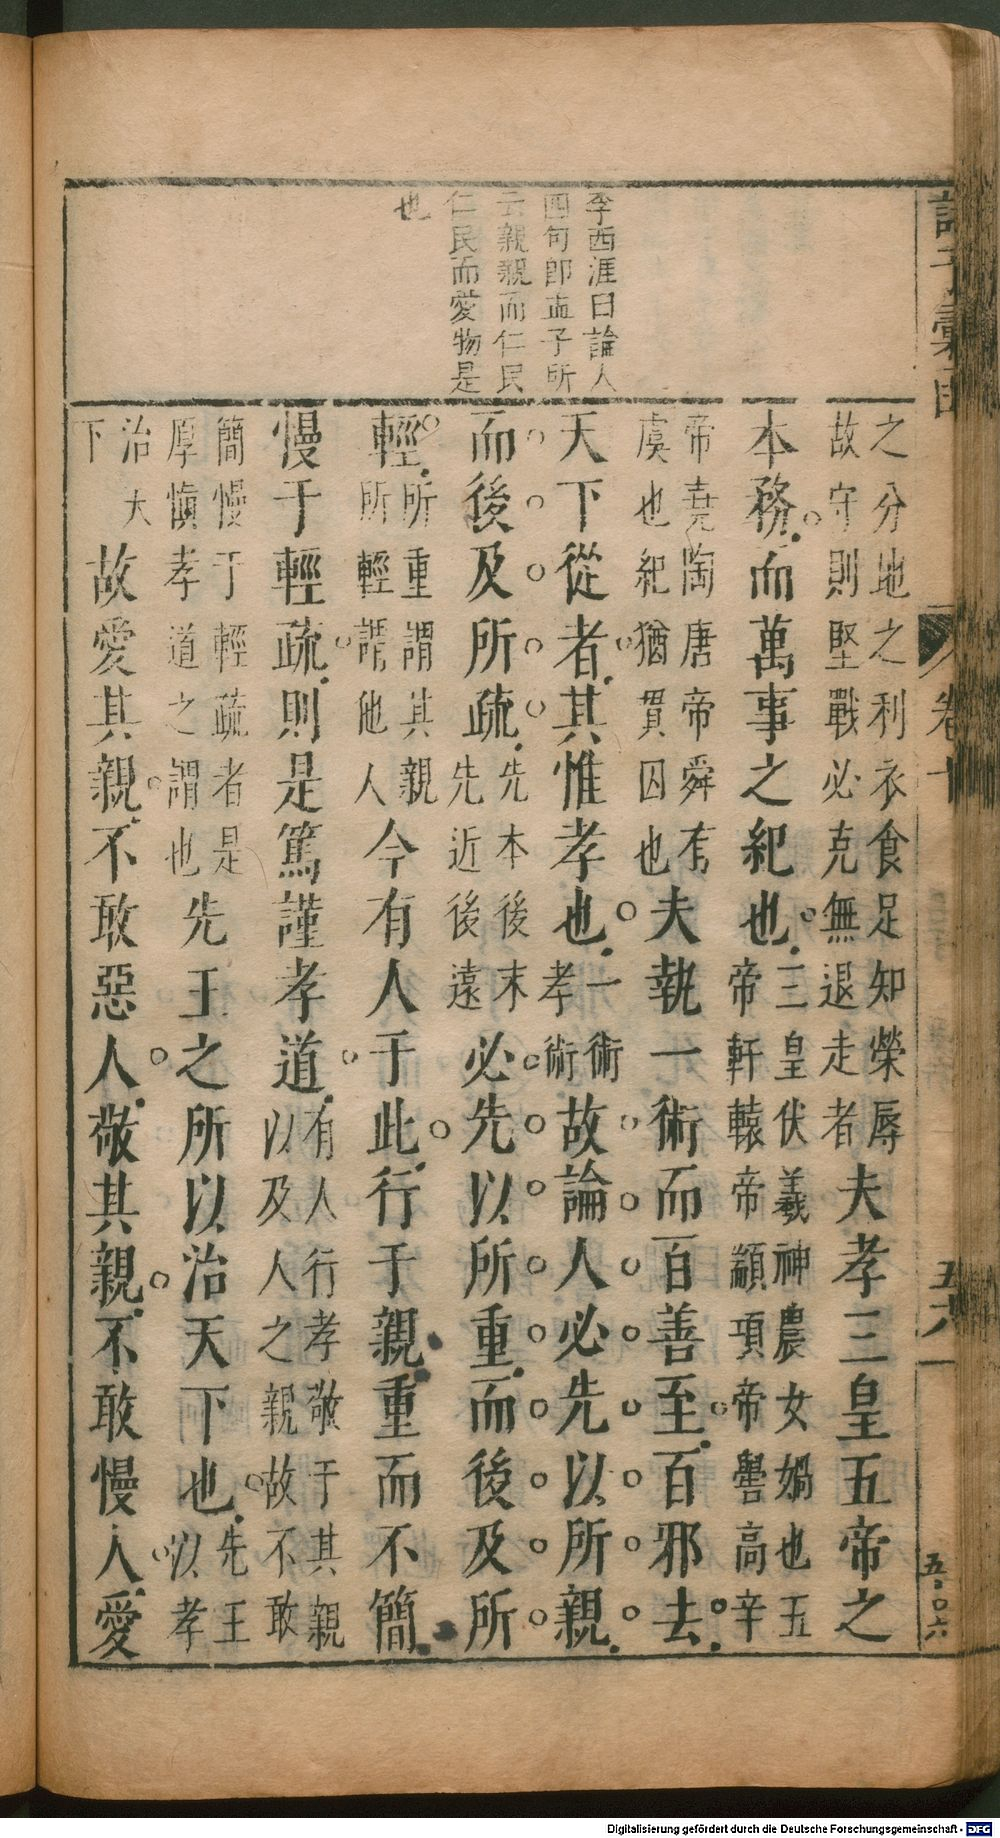 李西涯曰論人
四句即孟子所
云親親而仁民
仁民而愛物是
也
之分地之利衣食足知榮辱
故守則堅戰必克無退走者
夫孝三皇五帝之
本務而萬事之紀也
三皇伏羲神農女媧也五
帝軒轅帝顓頊帝嚳高辛
帝堯陶唐帝舜有
虞也紀猶貫因也
夫執一術而百善至百邪去
天下從者其惟孝也
一術
孝術
故論人必先以所親
而後及所疏
先本後末
先近後遠
必先以所重而後及所
輕
所重謂其親
所輕謂他人
今有人于此行于親重而不簡
慢于輕疏則是篤謹孝道
有人行孝敬于其親
以及人之親故不敢
簡慢于輕疏者是
厚慎孝道之謂也
先王之所以治天下也
先王
以孝
治天
下
故愛其親不敢惡人敬其親不敢慢人愛
卷十
五六
五〇六
Digitalisierung gefördert durch die Deutsche Forschungsgemeinschaft - DFG